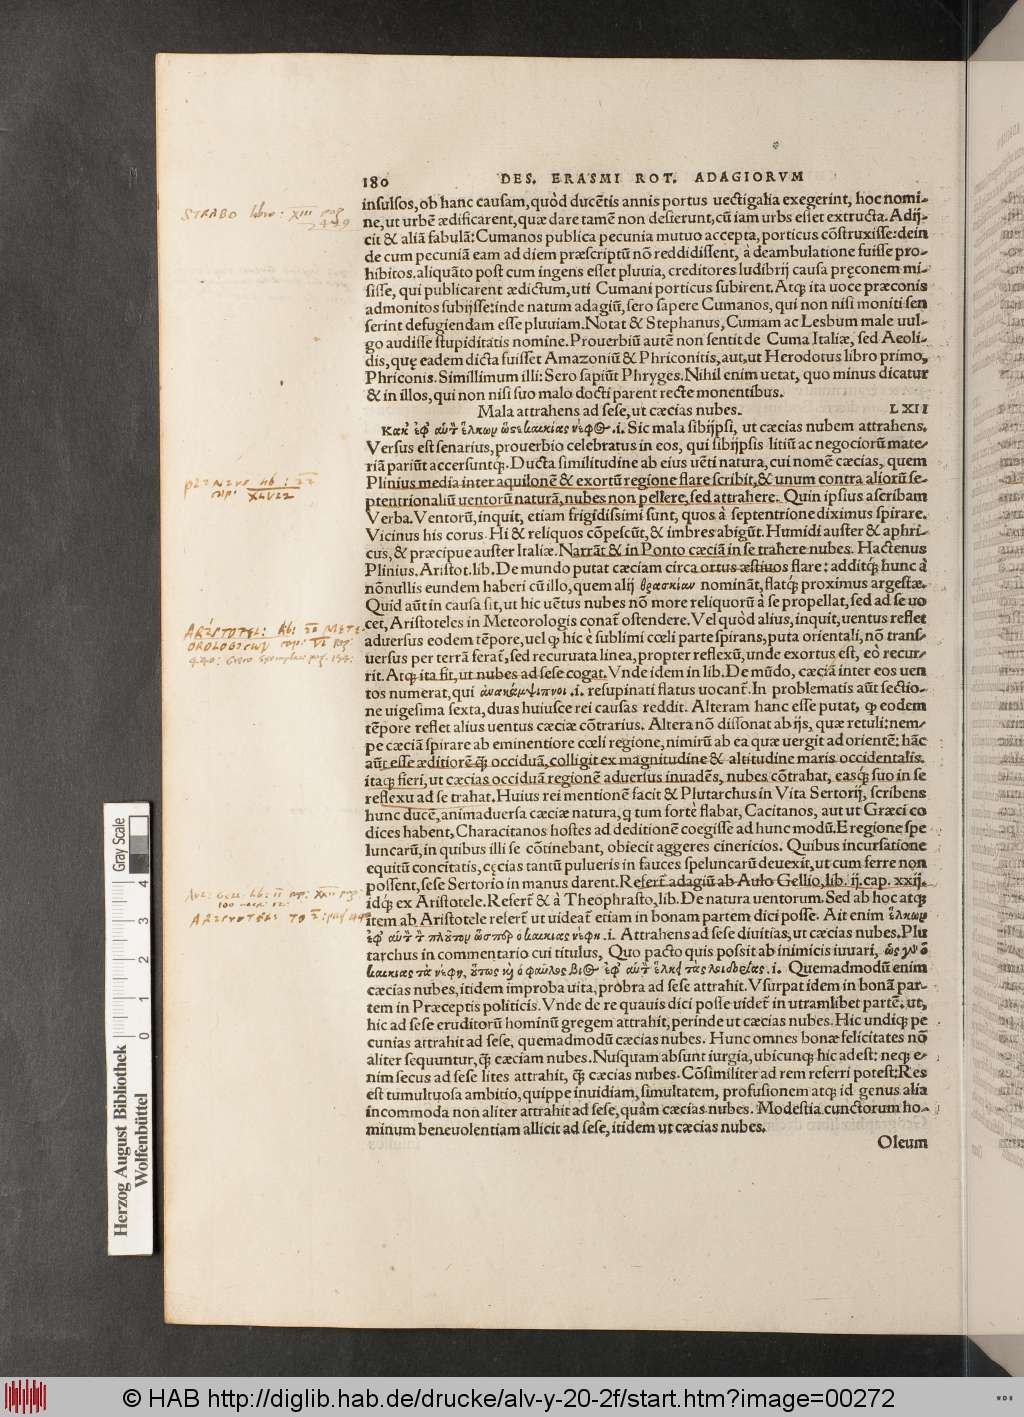 180 DES. ERASMI ROT. ADAGIORVM
insulsos, ob hanc causam, quòd ducētis annis portus uectigalia exegerint, hoc nomi-
ne, ut urbē ædificarent, quæ dare tamē non desierunt, cū iam urbs esset extructa. Adij-
cit & aliā fabulā: Cumanos publica pecunia mutuo accepta, porticus cōstruxisse: dein
de cum pecuniā eam ad diem præscriptū nō reddidissent, à deambulatione fuisse pro-
hibitos. aliquāto post cum ingens esset pluuia, creditores ludibrij causa pręconem mi-
sisse, qui publicarent ædictum, uti Cumani porticus subirent. Atq; ita uoce præconis
admonitos subijsse: inde natum adagiū, sero sapere Cumanos, qui non nisi moniti sen
serint defugiendam esse pluuiam. Notat & Stephanus, Cumam ac Lesbum male uul-
go audisse stupiditatis nomine. Prouerbiū autē non sentit de Cuma Italiæ, sed Aeoli-
dis, quę eadem dicta fuisset Amazoniū & Phriconitis, aut, ut Herodotus libro primo,
Phriconis. Simillimum illi: Sero sapiūt Phryges. Nihil enim uetat, quo minus dicatur
& in illos, qui non nisi suo malo docti parent recte monentibus.
Mala attrahens ad sese, ut cæcias nubes. LXII
Κακ' ἐφ' αὑτὸν ἕλκων ὥσε καικίας νέφΘ. .i. Sic mala sibijpsi, ut cæcias nubem attrahens.
Versus est senarius, prouerbio celebratus in eos, qui sibijpsis litiū ac negociorū mate-
riā pariūt accersuntq;. Ducta similitudine ab eius uēti natura, cui nomē cæcias, quem
Plinius media inter aquilonē & exortū regione flare scribit, & unum contra aliorū se-
ptentrionaliū uentorū naturā, nubes non pellere, sed attrahere. Quin ipsius ascribam
Verba. Ventorū, inquit, etiam frigidissimi sunt, quos à septentrione diximus spirare.
Vicinus his corus. Hi & reliquos cōpescūt, & imbres abigūt. Humidi auster & aphri-
cus, & præcipue auster Italiæ. Narrāt & in Ponto cæciā in se trahere nubes. Hactenus
Plinius. Aristot. lib. De mundo putat cæciam circa ortus æstiuos flare: additq; hunc à
nōnullis eundem haberi cū illo, quem alij θρασκίαν nomināt, flatq; proximus argestæ.
Quid aūt in causa sit, ut hic uētus nubes nō more reliquorū à se propellat, sed ad se uo
cet, Aristoteles in Meteorologis conat̄ ostendere. Vel quòd alius, inquit, uentus reflet
aduersus eodem tēpore, uel φ hic è sublimi cœli parte spirans, puta orientali, nō trans-
uersus per terrā ferat̄, sed recuruata linea, propter reflexū, unde exortus est, eò recur-
rit. Atq; ita fit, ut nubes ad sese cogat. Vnde idem in lib. De mūdo, cæciā inter eos uen
tos numerat, qui ἀνακάμψιπνοι .i. resupinati flatus uocant̄. In problematis aūt sectio-
ne uigesima sexta, duas huiusce rei causas reddit. Alteram hanc esse putat, φ eodem
tēpore reflet alius uentus cæciæ cōtrarius. Altera nō dissonat ab ijs, quæ retuli: nem-
pe cæciā spirare ab eminentiore cœli regione, nimirū ab ea quæ uergit ad orientē: hāc
aūt esse æditiorē q̄; occiduā, colligit ex magnitudine & altitudine maris occidentalis.
itaq; fieri, ut cæcias occiduā regionē aduersus inuadēs, nubes cōtrahat, easq; suo in se
reflexu ad se trahat. Huius rei mentionē facit & Plutarchus in Vita Sertorij, scribens
hunc ducē, animaduersa cæciæ natura, q̄ tum fortè flabat, Cacitanos, aut ut Græci co
dices habent, Characitanos hostes ad deditionē coegisse ad hunc modū. E regione spe
luncarū, in quibus illi se cōtinebant, obiecit aggeres cinericios. Quibus incursatione
equitū concitatis, cęcias tantū pulueris in fauces speluncarū deuexit, ut cum ferre non
possent, sese Sertorio in manus darent. Refert̄ adagiū ab Aulo Gellio, lib. ij. cap. xxij.
idq; ex Aristotele. Refert̄ & à Theophrasto, lib. De natura uentorum. Sed ab hoc atq;
item ab Aristotele refert̄ ut uideat̄ etiam in bonam partem dici posse. Ait enim ἕλκων
ἐφ' αὑτὸν τὸν πλοῦτον ὥσπερ ὁ καικίας νέφη .i. Attrahens ad sese diuitias, ut cæcias nubes. Plu
tarchus in commentario cui titulus, Quo pacto quis possit ab inimicis iuuari, ὡς γὰρ ὁ
καικίας τὰ νέφη, οὕτως καὶ ὁ φαῦλος βίΘ ἐφ' αὑτὸν ἕλκει τὰς λοιδορίας .i. Quemadmodū enim
cæcias nubes, itidem improba uita, probra ad sese attrahit. Vsurpat idem in bonā par-
tem in Præceptis politicis. Vnde de re quauis dici posse uidet̄ in utramlibet partē. ut,
hic ad sese eruditorū hominū gregem attrahit, perinde ut cæcias nubes. Hic undiq; pe
cunias attrahit ad sese, quemadmodū cæcias nubes. Hunc omnes bonæ felicitates nō
aliter sequuntur, q̄; cæciam nubes. Nusquam absunt iurgia, ubicunq; hic adest: neq; e-
nim secus ad sese lites attrahit, q̄; cæcias nubes. Cōsimiliter ad rem referri potest: Res
est tumultuosa ambitio, quippe inuidiam, simultatem, profusionem atq; id genus alia
incommoda non aliter attrahit ad sese, quàm cæcias nubes. Modestia cunctorum ho-
minum beneuolentiam allicit ad sese, itidem ut cæcias nubes.
Oleum
STRABO libro: XIII pag
449
PLINIVS lib:
cap: XLVII
ARISTOTEL: lib: METE-
OROLOGICωN cap: VI pag:
AVL: GELL: lib: II cap: XXII pag:
ARISTOTELES
Gray Scale
0 1 2 3 4
Herzog August Bibliothek
Wolfenbüttel
© HAB http://diglib.hab.de/drucke/alv-y-20-2f/start.htm?image=00272